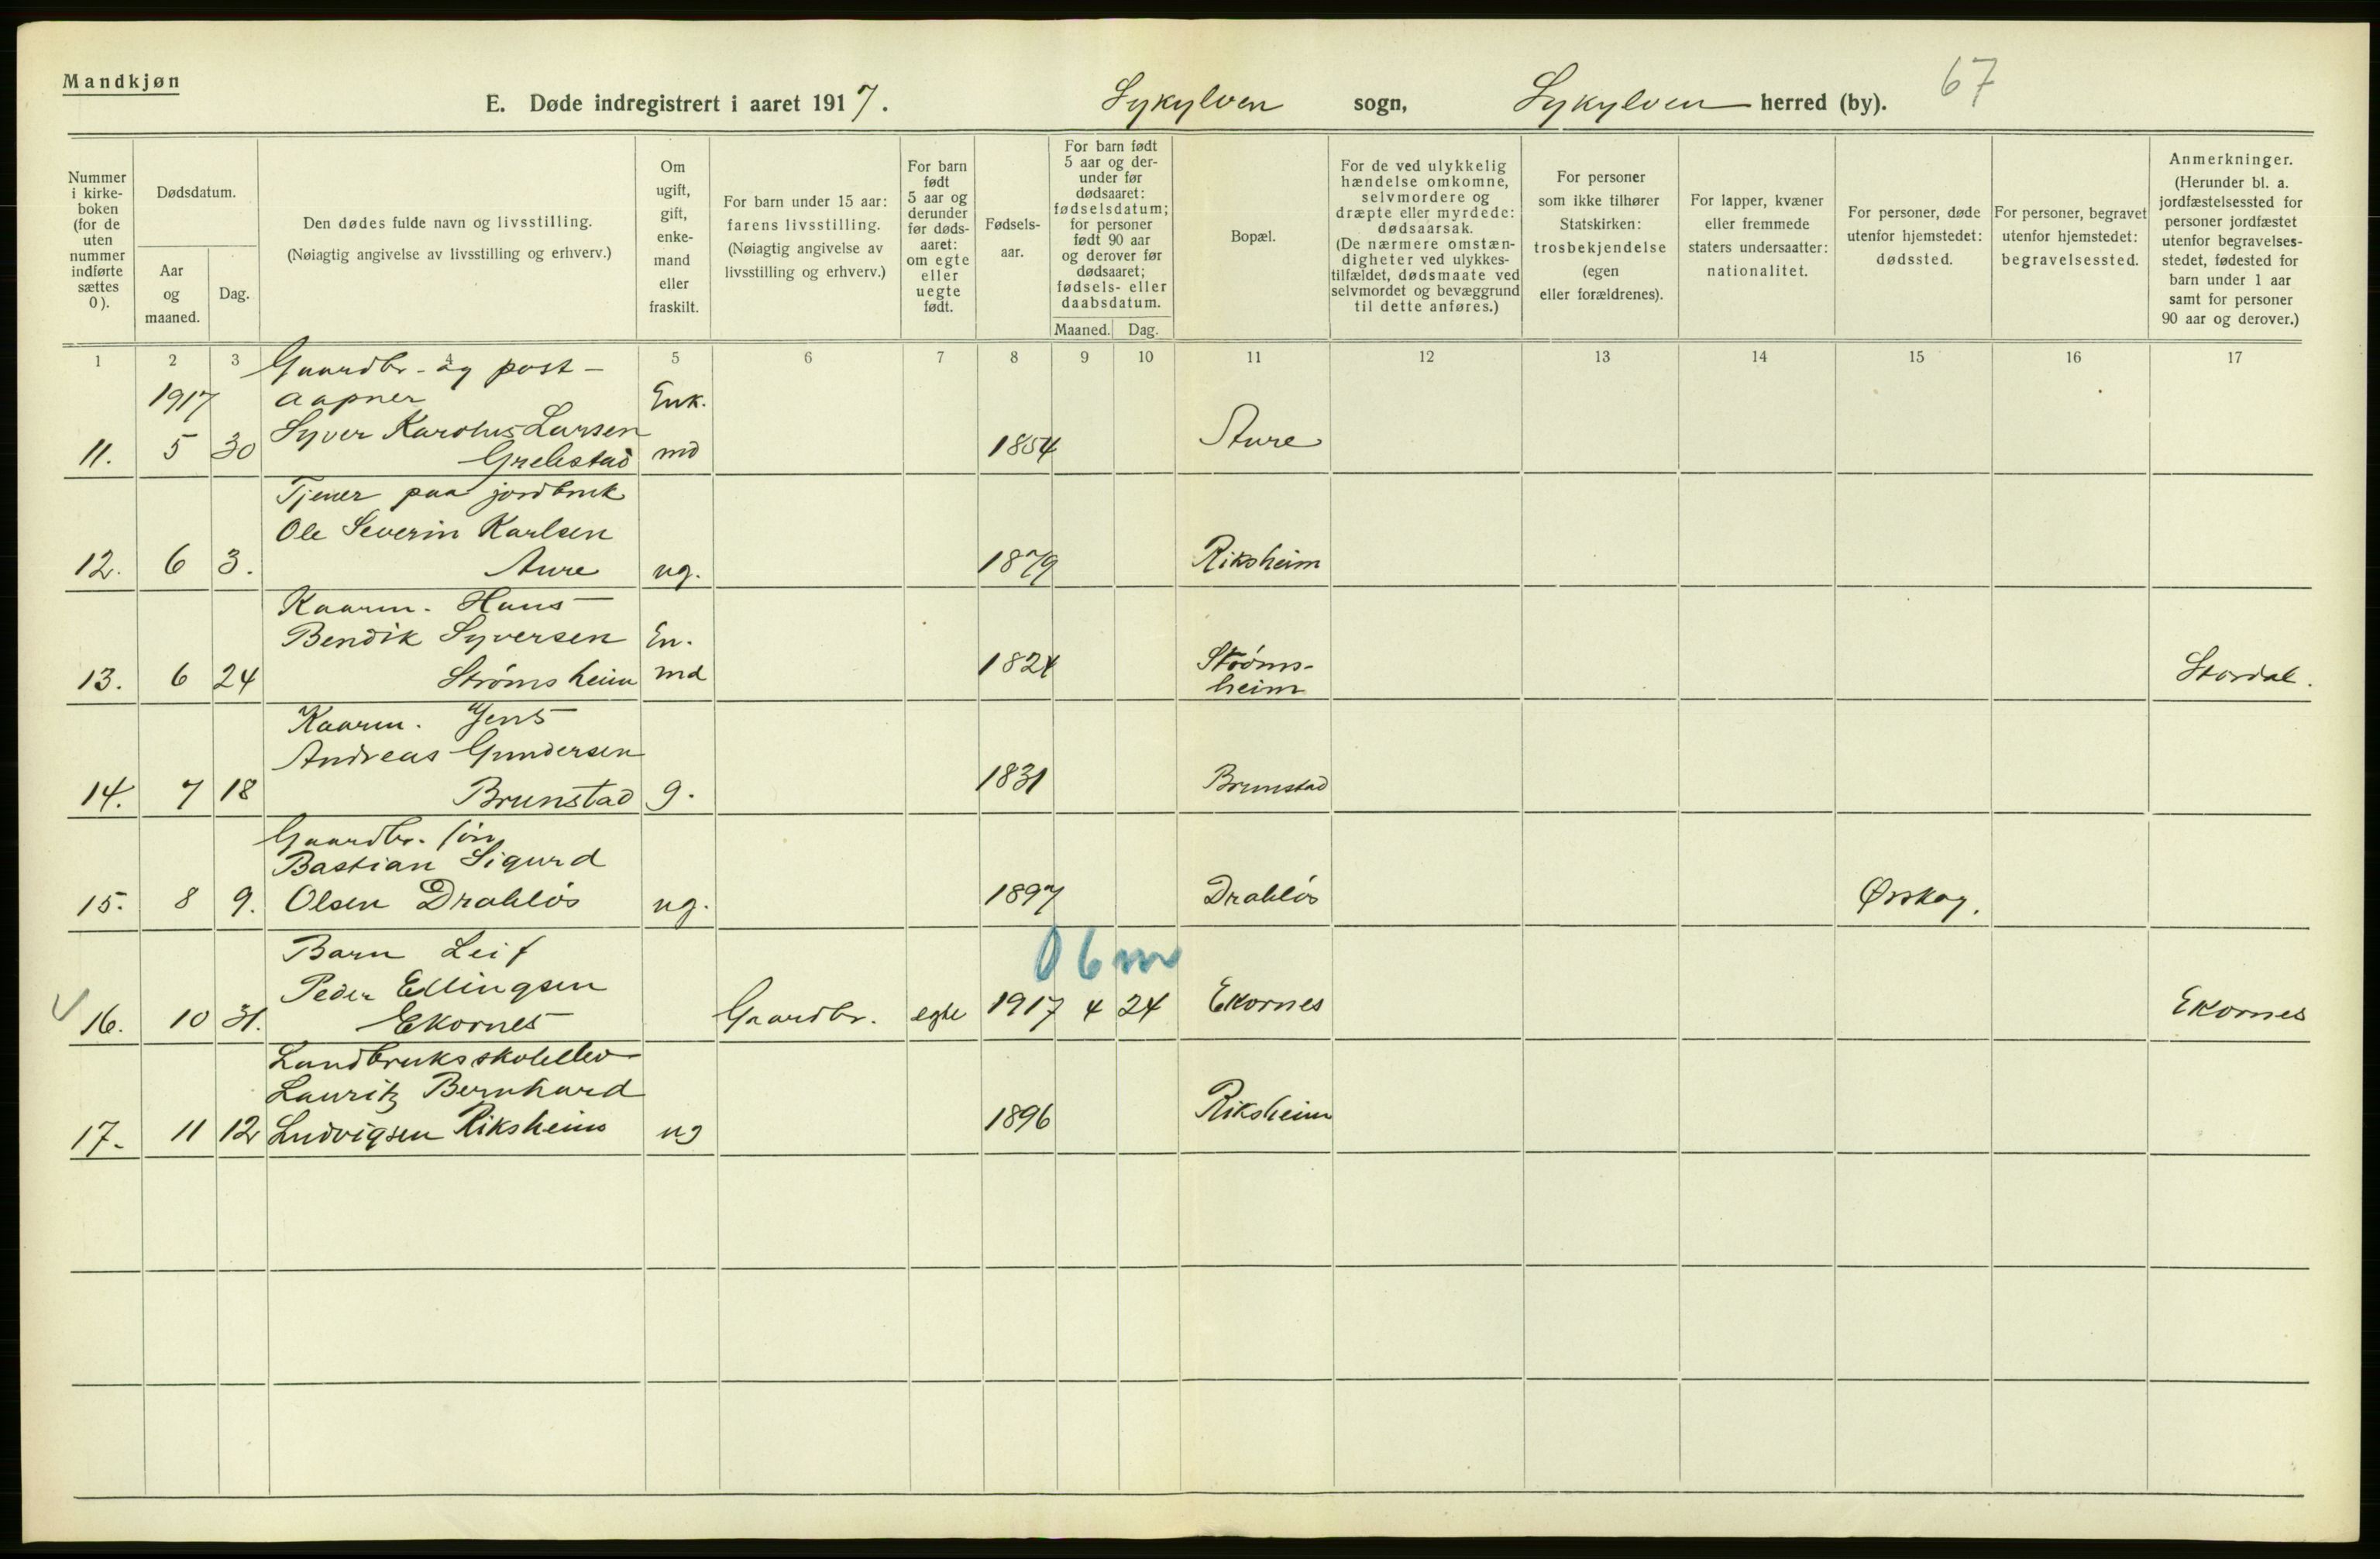 Mandkjøn
E. Døde indregistrert i aaret 1917. Sykylven sogn, Sykylven herred (by). 67
Nummer i kirke-boken (for de uten nummer indførte sættes 0).
Dødsdatum.
Aar og maaned.
Dag.
Den dødes fulde navn og livsstilling.
(Nøiagtig angivelse av livsstilling og erhverv.)
Om ugift, gift, enke-mand eller fraskilt.
For barn under 15 aar: farens livsstilling.
(Nøiagtig angivelse av livsstilling og erhverv.)
For barn født 5 aar og derunder før døds-aaret: om egte eller uegte født.
Fødsels-aar.
For barn født 5 aar og der-under før dødsaaret: fødselsdatum; for personer født 90 aar og derover før dødsaaret; fødsels- eller daabsdatum.
Maaned. Dag.
Bopæl.
For de ved ulykkelig hændelse omkomne, selvmordere og dræpte eller myrdede: dødsaarsak.
(De nærmere omstæn-digheter ved ulykkes-tilfældet, dødsmaate ved selvmordet og bevæggrund til dette anføres.)
For personer som ikke tilhører Statskirken: trosbekjendelse (egen eller forældrenes).
For lapper, kvæner eller fremmede staters undersaatter: nationalitet.
For personer, døde utenfor hjemstedet: dødssted.
For personer, begravet utenfor hjemstedet: begravelsessted.
Anmerkninger.
(Herunder bl. a. jordfæstelsessted for personer jordfæstet utenfor begravelses-stedet, fødested for barn under 1 aar samt for personer 90 aar og derover.)
1 2 3 4 5 6 7 8 9 10 11 12 13 14 15 16 17
Gaardbr. og post-
1917 aapner Enk.
Syver Karolus Larsen
11. 5 30 Grebstad md 1854 Aure
Tjener paa jordbruk
Ole Severin Karlsen
12. 6 3. Aure ug. 1879 Riksheim
Kaarm. Hans
Bendik Syversen En.
13. 6 24 Strømsheim md 1824 Strøms-heim Stordal.
Kaarm. Jens
Andreas Gundersen
14. 7 18 Brunstad g. 1831 Brunstad
Gaardbr. søn
Bastian Sigurd
15. 8 9. Olsen Drabløs ug. 1897 Drabløs Ørskog.
Barn Leif 0 6 m
Peder Ellingsen
16. 10 31. Ekornes Gaardbr. egte 1917 4 24 Ekornes Ekornes
Landbruksskoleelev
Lauritz Bernhard
17. 11 12 Ludvigsen Riksheim ug 1896 Riksheim